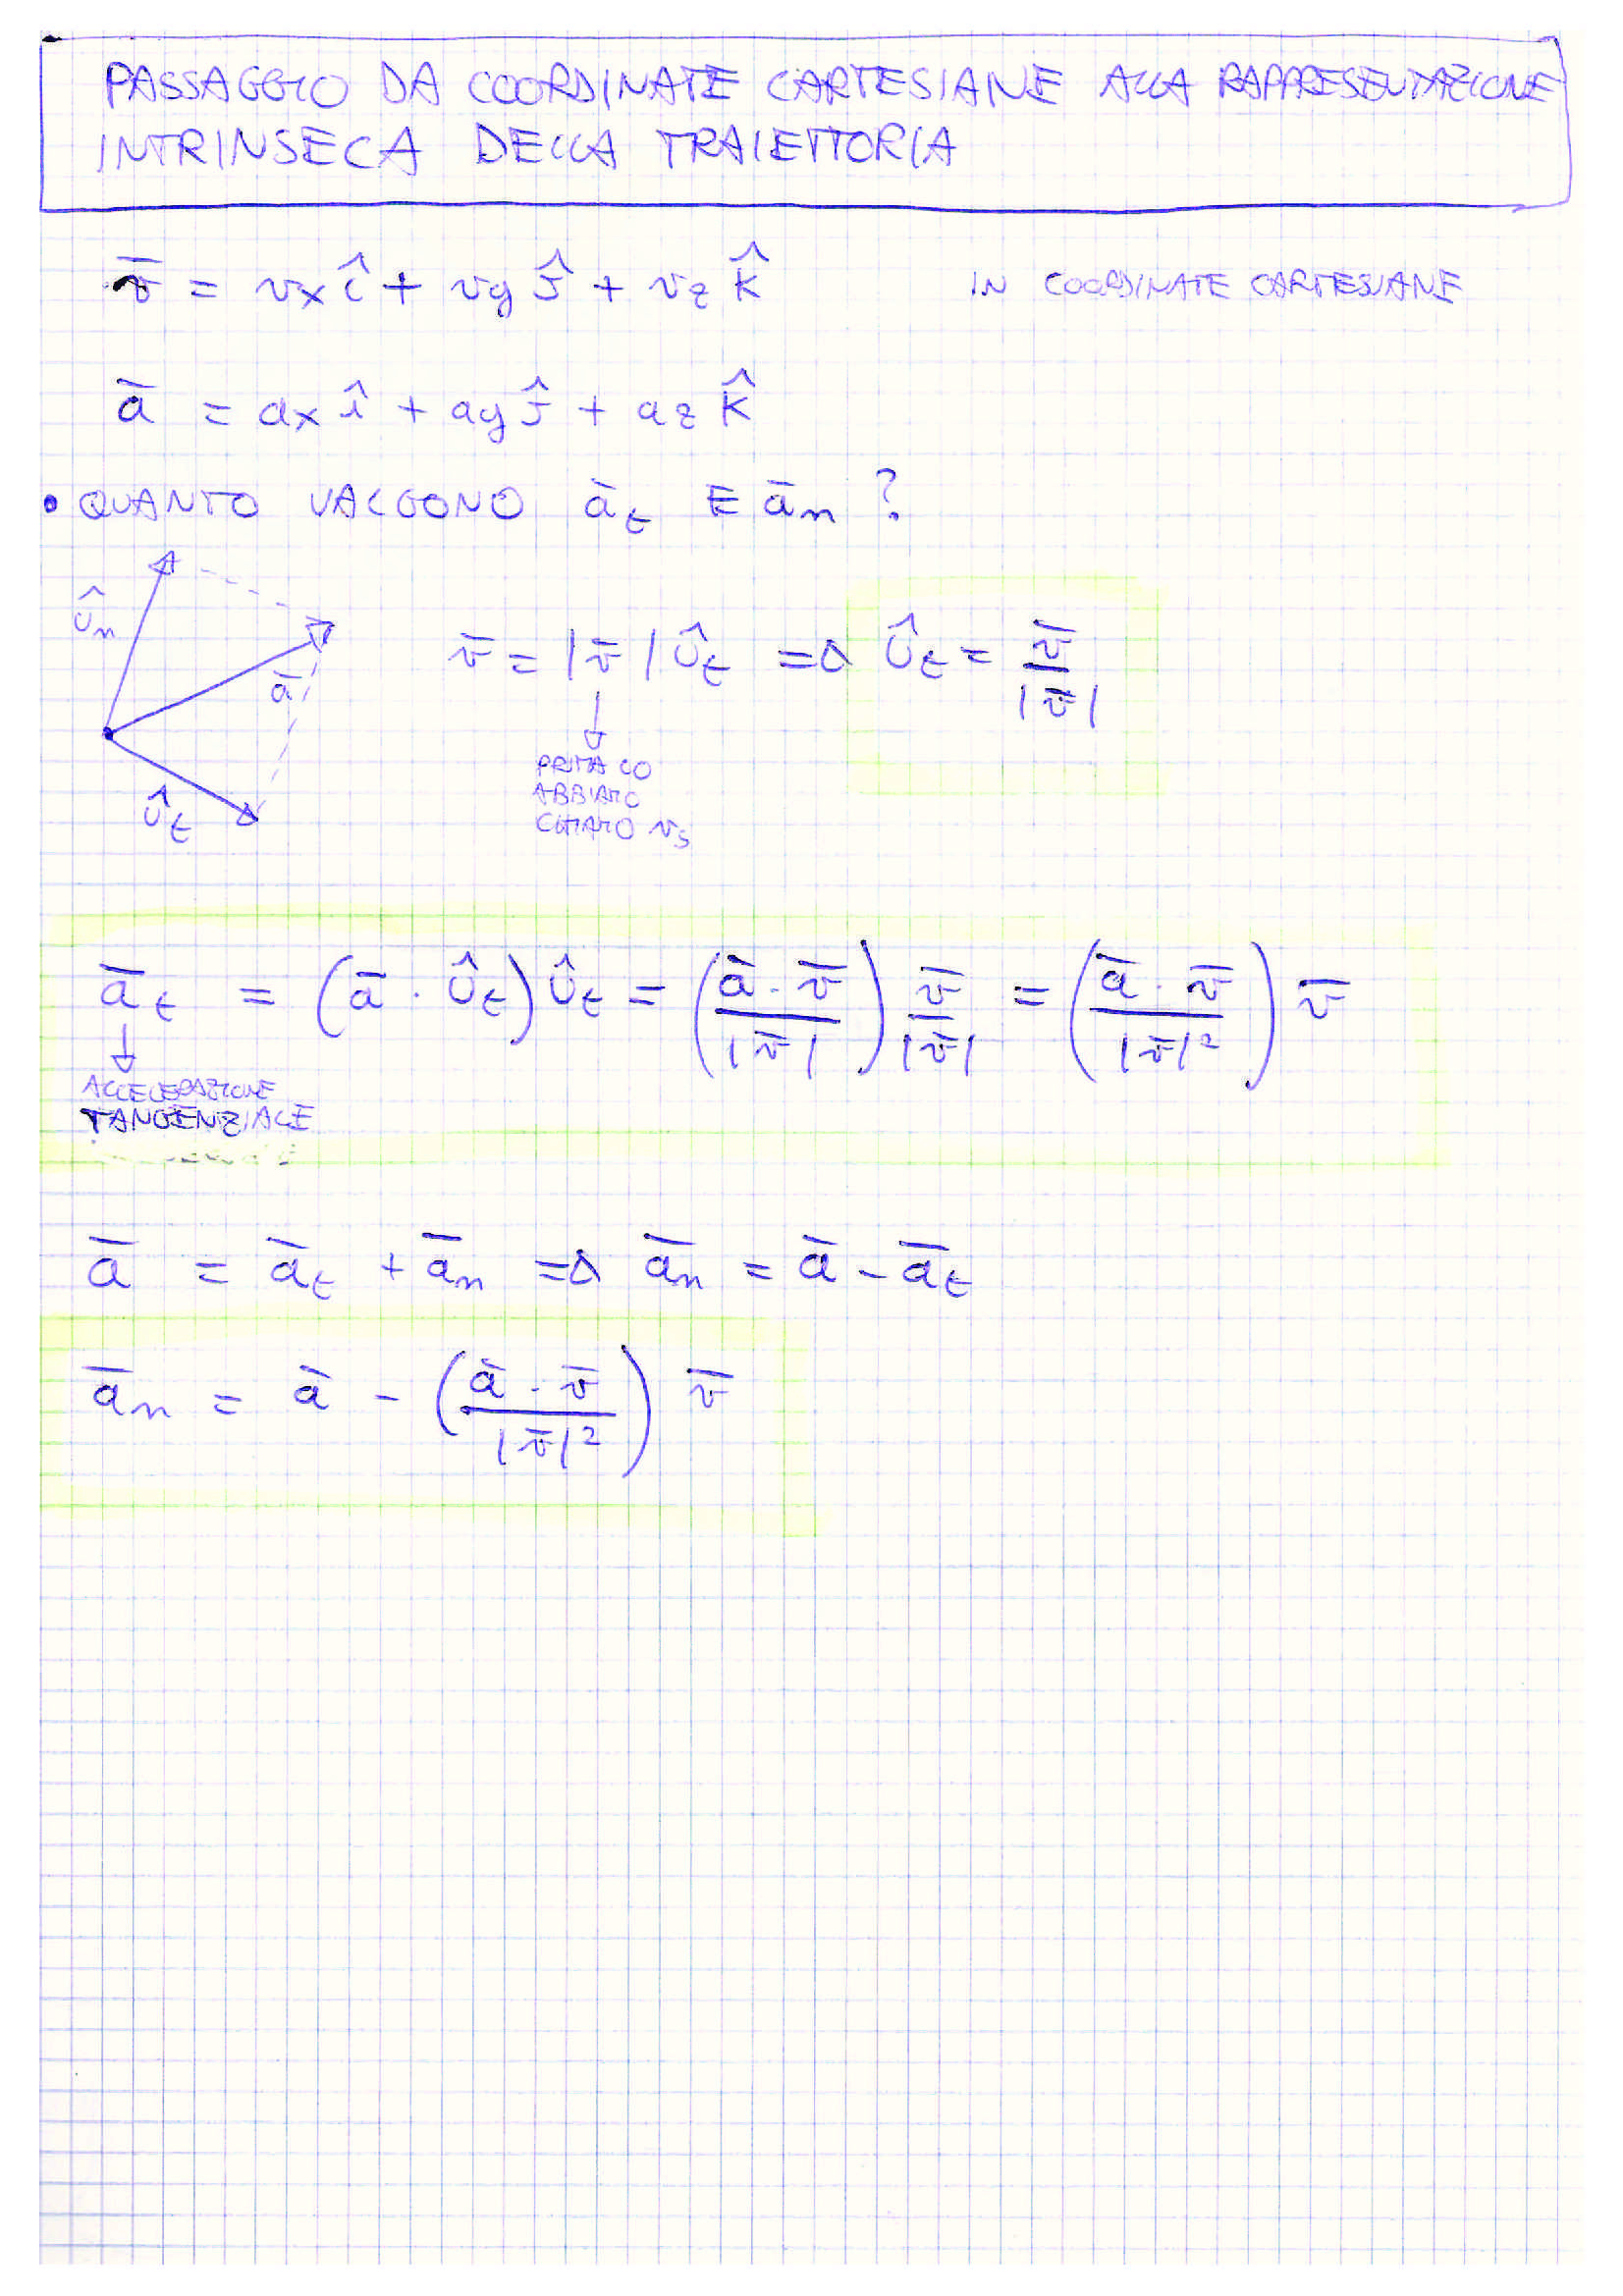 PASSAGGIO DA COORDINATE CARTESIANE ALLA RAPPRESENTAZIONE
INTRINSECA DELLA TRAIETTORIA
v̄ = vx î + vy ĵ + vz k̂ IN COORDINATE CARTESIANE
ā = ax î + ay ĵ + az k̂
• QUANTO VALGONO ā_t E ā_n ?
û_n
ā
û_t
v̄ = |v̄| û_t => û_t = v̄ / |v̄|
↓
PRIMA LO
ABBIAMO
CHIAMATO v_s
ā_t = (ā · û_t) û_t = (ā · v̄ / |v̄|) v̄ / |v̄| = (ā · v̄ / |v̄|²) v̄
↓
ACCELERAZIONE
TANGENZIALE
ā = ā_t + ā_n => ā_n = ā - ā_t
ā_n = ā - (ā · v̄ / |v̄|²) v̄